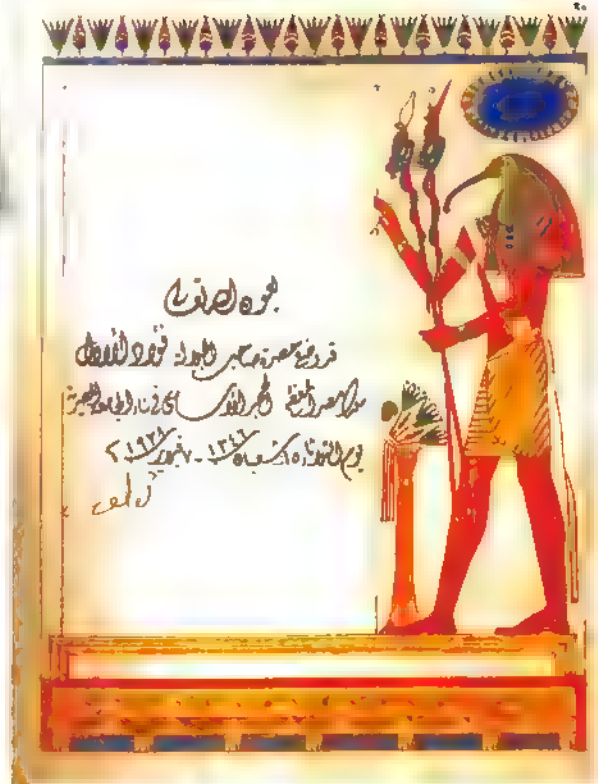 بعون الله تعالى
قد وضع حضرة صاحب الجلالة فؤاد الأول
ملك مصر المعظم الحجر الأساسى فى بناء الجامعة المصرية
يوم الثلاثاء ١٥ شعبان ١٣٤٦ - ٧ فبراير ١٩٢٨